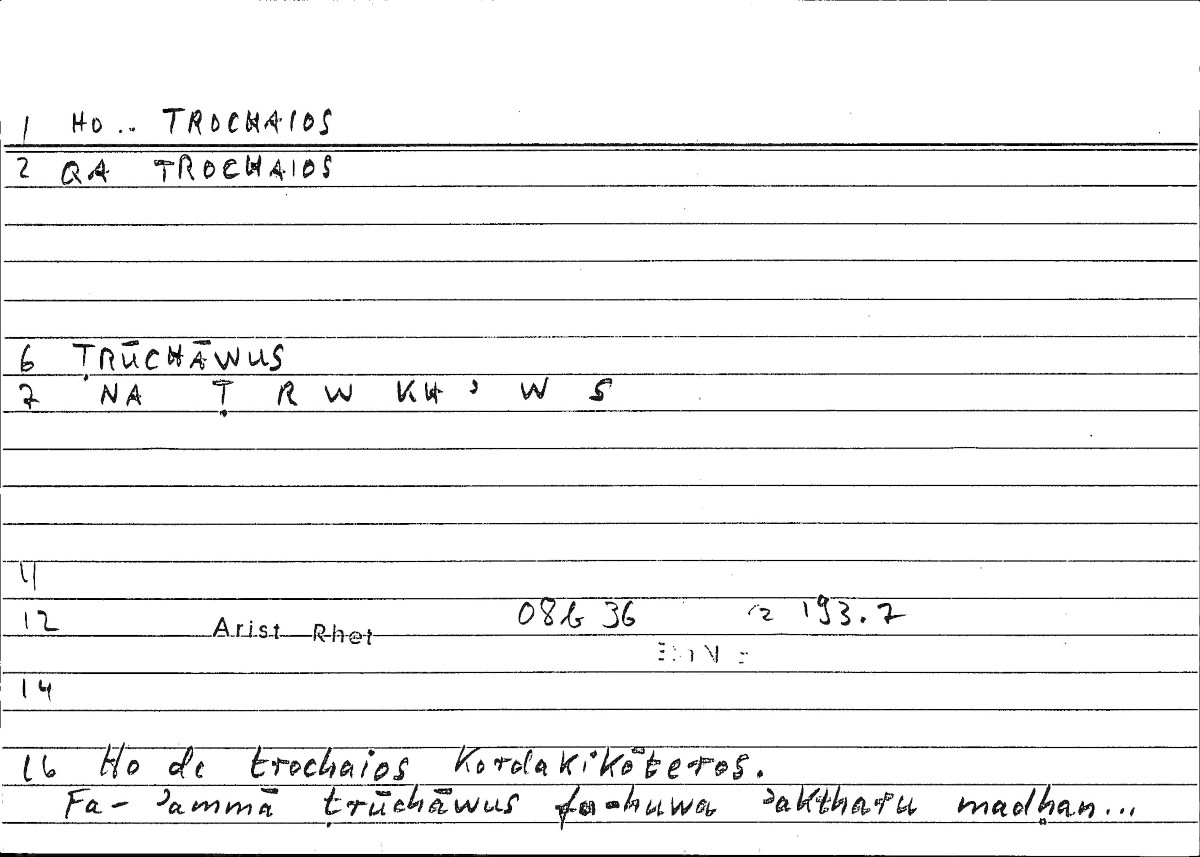 1 HO.. TROCHAIOS
2 QA TROCHAIOS
6 ṬRŪCHĀWUS
7 NA Ṭ R W KH ʾ W S
11
12 Arist Rhet 08b 36 193.7
14
16 Ho de trochaios kordakikōteros.
Fa- ʾammā ṭrūchāwus fa-huwa ʾaktharu madḥan...